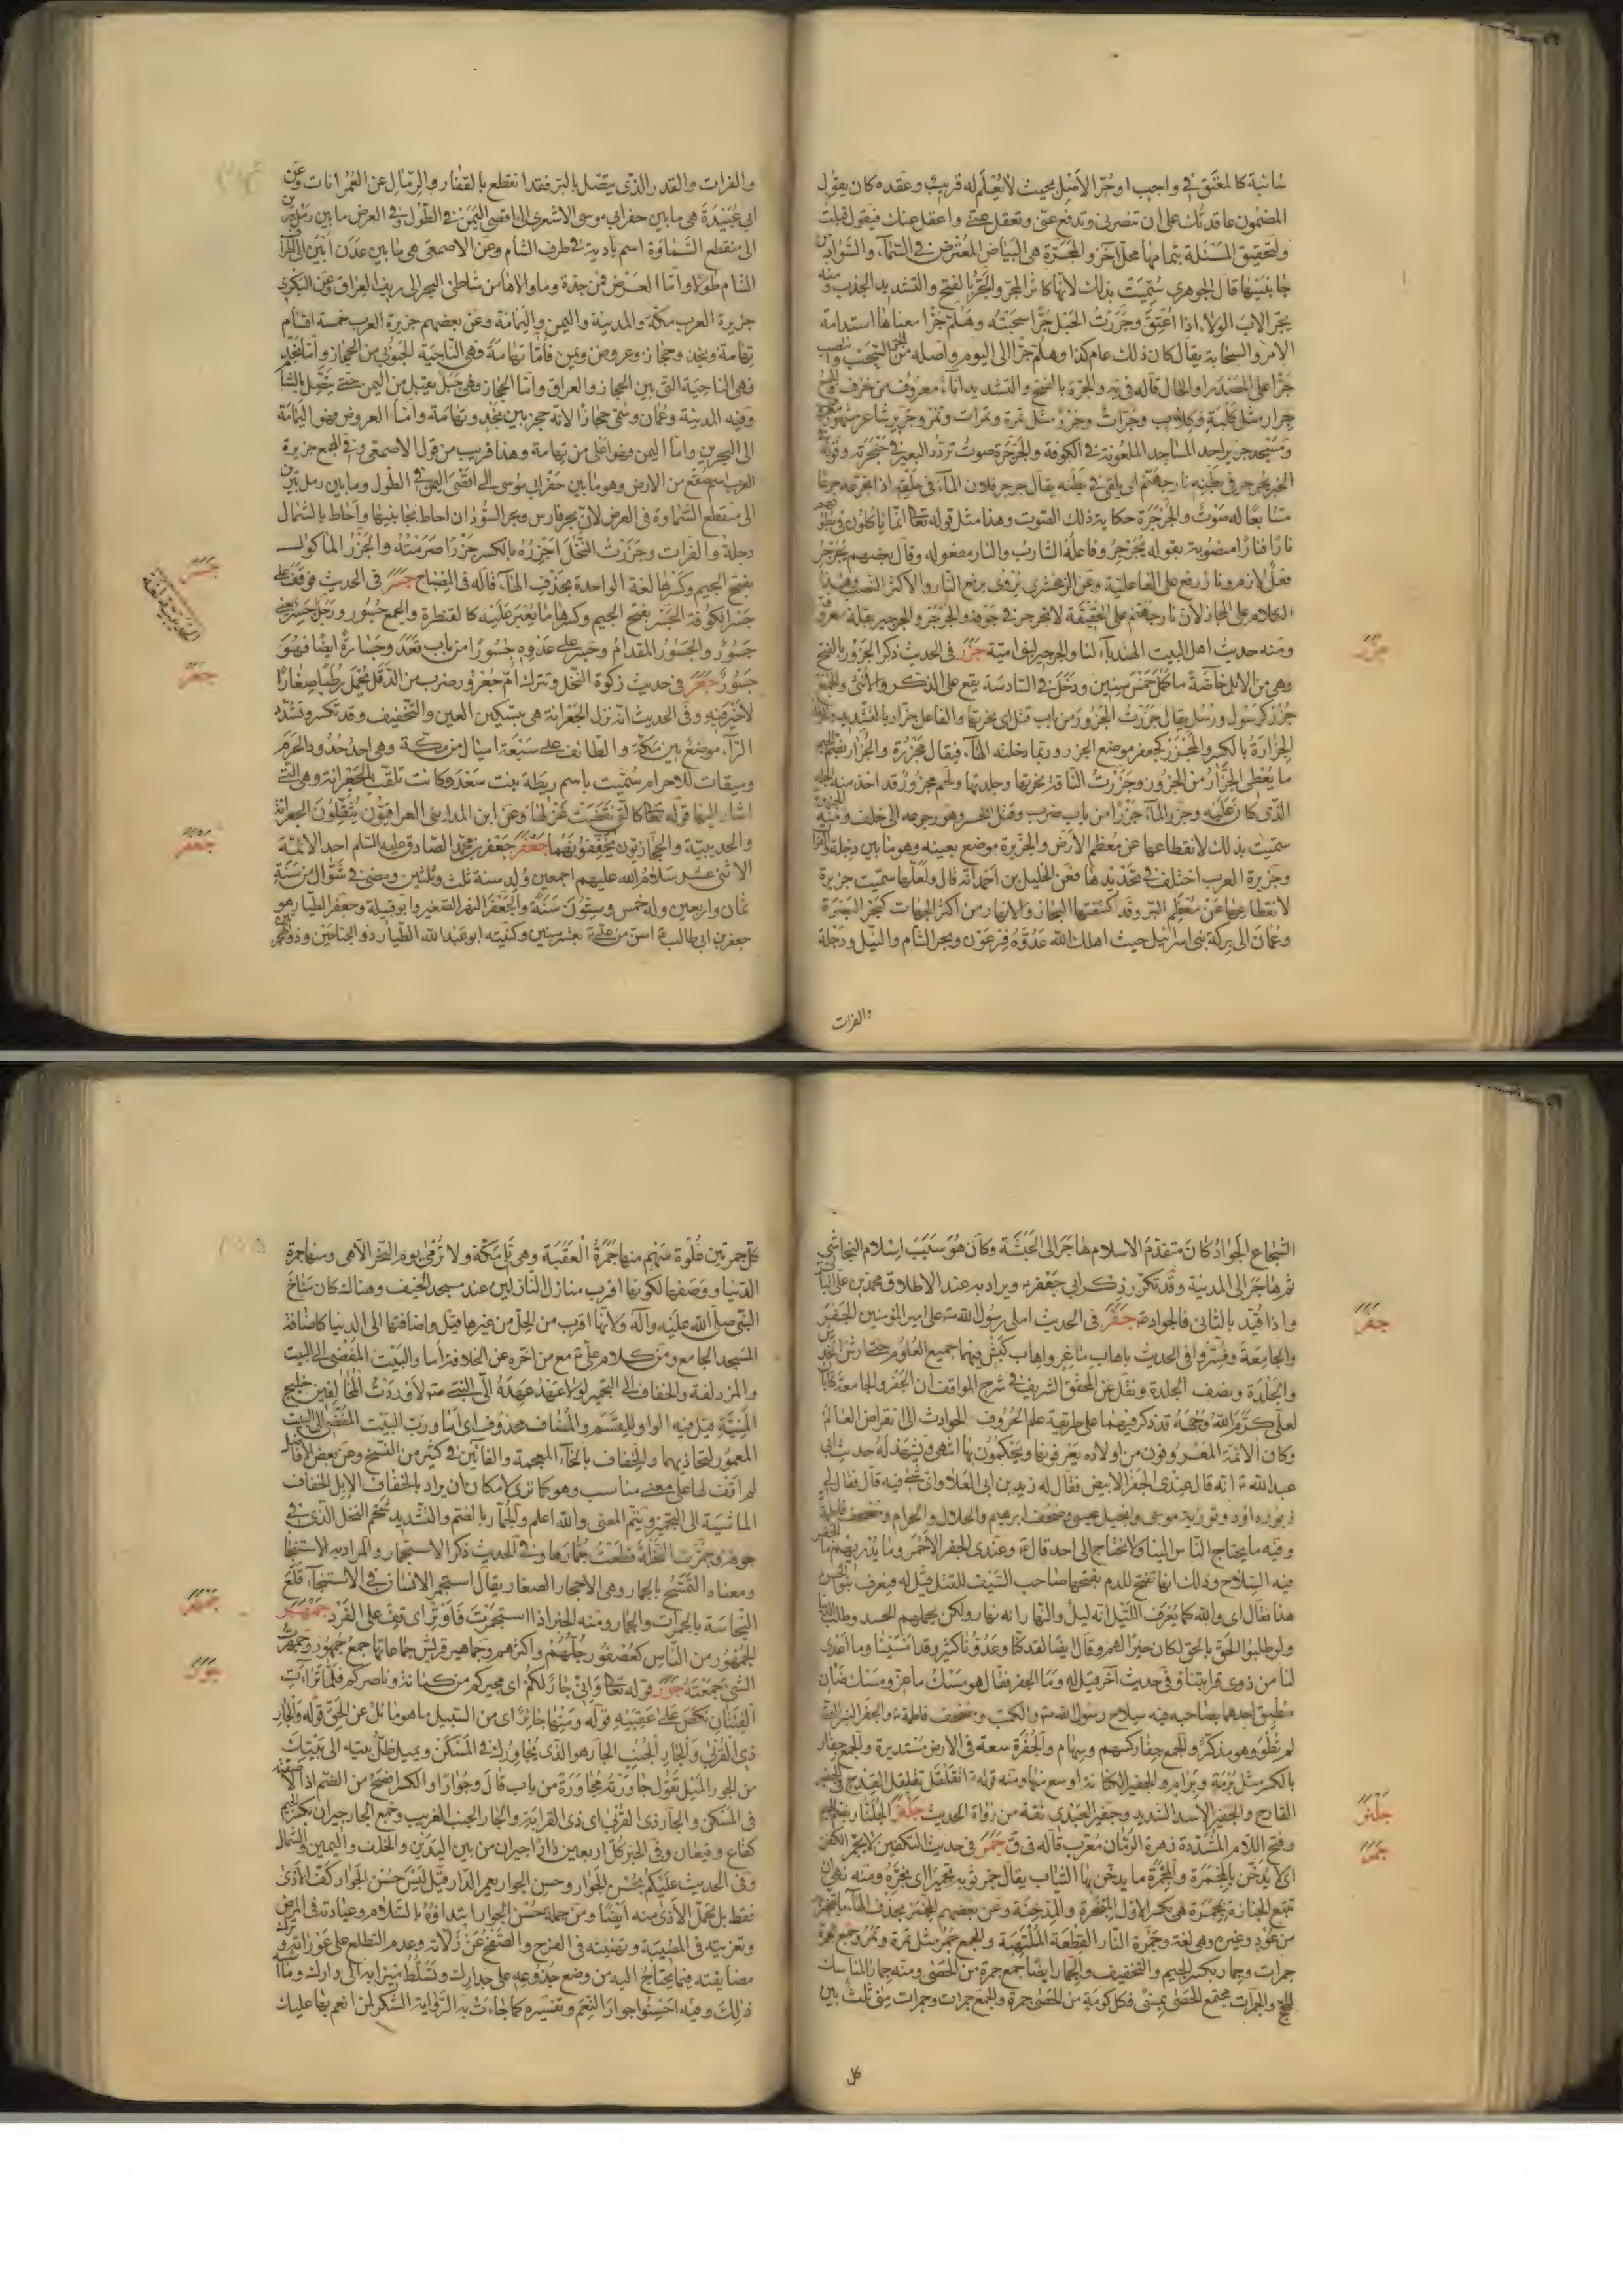 خانية كالمغتق في واجب او حرّ الأصل بحيث لا يُعلم له قريب وعقده كان يقول
المضمون عاقدتك على ان تنصرني وتدفع عني وتعقل عني واعقل عنك فيقول قبلت
ولتحقيق المسئلة بتمامها محل آخر والمجرّة هي البياض المعترض في السّمآء والنسران
جانبيها قال الجوهري سُمّيت بذلك لانّها كاثر المجرّ والجَرّ بالفتح والتشديد الجذب ومنه
يجرّ الاب الولاء اذا اعتق وجررت الحبل جرّا سحبته وهلمّ جرّا معناها استدامة
الامر يقال كان ذلك عام كذا وهلمّ جرّا الى اليوم واصله من الجرّ السّحب وانتصب
جرّا على المصدر او الحال والجرّة بالفتح والتشديد اناء معروف من خزف والجمع
جرار مثل كلبة وكلاب وجرّات وجرّ مثل تمرة وتمرات وتمر وجرير شاعر مشهور
ومسجد جرير احد المساجد الملعونة في الكوفة والجرجرة صوت تردّد البعير في حنجرته وقوله
الخبر يجرجر في بطنه نار جهنّم اي يلقى في بطنه يقال جرجر فلان المآء في حلقه اذا جرعه جرعا
متتابعا له صوت والجرجرة حكاية ذلك الصّوت وهذا مثل قوله تعالى انّما ياكلون في بطونهم
نارا فنارا منصوبة بقوله يجرجر وفاعله الشارب والنار مفعوله وقال بعضهم يجرجر
فعل لازم ونار رفع على الفاعلية وعن الزمخشري يروى برفع النار والاكثر النصب وهذا
الكلام على المجاز لأن نار جهنّم على الحقيقة لا تجرجر في جوفه والجرجر والجرجير بقلة معروفة
ومنه حديث اهل البيت الهندباء لنا والجرجير لبني اميّة جزر في الحديث ذكر الجزور بالفتح
وهي من الابل خاصّة ما كمل خمس سنين ودخل في السّادسة يقع على الذّكر والأنثى والجمع
جزر كرسول ورسل يقال جزرت الجزور من باب قتل اي نحرتها والفاعل جزّار بالتشديد
الجزارة بالكسر والمجزر كجعفر موضع الجزر وربّما دخلته الهآء فيقال مجزرة والجزارة بضم الجيم
ما يُعطى الجزّار من الجزور وجزرت الناقة نحرتها وجلدتها ولحم مجزور قد اخذ منه الجلد
الذي كان عليه وجزر المآء جزرا من باب ضرب وقتل انحسر وهو رجوعه الى خلف ومنه الجزيرة
سمّيت بذلك لانقطاعها عن معظم الأرض والجزيرة موضع بعينه وهو ما بين دجلة والفرات
وجزيرة العرب اختلف في تحديدها فعن الخليل بن احمد انّه قال ولعلّها سمّيت جزيرة
لانقطاعها عن معظم البرّ وقد اكتنفتها البحار والانهار من اكثر الجهات كبحر البصرة
وعمان الى بركة بني اسرائيل حيث اهلك الله عدوّه فرعون وبحر الشام والنيل ودجلة
والفرات
جزر
والفرات والقدر الذي يتّصل بالبرّ فقد انقطع بالقفار والرمال عن العمرانات وعن
ابي عبيدة هي ما بين حفر ابي موسى الاشعري الى اقصى اليمن في الطول وفي العرض ما بين رمل يبرين
الى منقطع السّماوة اسم بادية في طرف الشام وعن الاصمعي هي ما بين عدن ابين الى اطراف
الشام طولا وامّا العرض فمن جدّة وما والاها من شاطئ البحر الى ريف العراق وعن البكري
جزيرة العرب مكّة والمدينة واليمن واليمامة وعن بعضهم جزيرة العرب خمسة اقسام
تهامة ونجد وحجاز وعروض ويمن فأمّا تهامة فهي النّاحية الجنوبي من الحجاز وأمّا نجد
فهي الناحية التي بين الحجاز والعراق وامّا الحجاز فهي جبل يقبل من اليمن حتى يتّصل بالشام
وفيه المدينة وعمان وسمّي حجازا لانّه حجز بين نجد وتهامة وامّا العروض فهو اليمامة
الى البحرين وامّا اليمن فهو اعلى من تهامة وهذا قريب من قول الاصمعي وفي المجمع جزيرة
العرب اسم صقع من الارض وهو ما بين حفر ابي موسى الى اقصى اليمن في الطول وما بين رمل يبرين
الى منقطع السّماوة في العرض لأنّ بحر فارس وبحر السّودان احاط بجانبيها واحاط بالشمال
دجلة والفرات وجزرت النّخل اجزره بالكسر جزرا صرمته والجزر الماكول
بفتح الجيم وكسرها لغة الواحدة بحذف الهآء قاله في المصباح جسر في الحديث فوقف على
جسر الكوفة الجسر بفتح الجيم وكسرها ما يعبر عليه كالقنطرة والجمع جسور ورجل جسر
جسور والجسور المقدام وجسر على عدوه جسورا من باب قعد وجسارة ايضا فهو
جسور جعر في حديث زكوة النخل وتترك امّ جعرور ضرب من الدّقل يحمل رطبا صغارا
لا خير فيه وفي الحديث انّه نزل الجعرانة هي بتسكين العين والتخفيف وقد تكسر وتشدّد
الرّآء موضع بين مكّة والطائف على سبعة اميال من مكّة وهي احد حدود الحرم
وميقات للاحرام سمّيت باسم ريطة بنت سعد وكانت تلقّب بالجعرانة وهي الّتي
اشار اليها قوله تعالى كالّتي نقضت غزلها وعن ابن المدايني العراقيّون يثقّلون الجعرانة
والحديبيّة والحجازيّون يخفّفونهما جعفر جعفر بن محمّد الصّادق عليه السّلام احد الائمّة
الاثنى عشر سلام الله عليهم اجمعين ولد سنة ثلث وثمانين ومضى في شوّال من سنة
ثمان واربعين وله خمس وستّون سنة والجعفر النهر الصّغير وابو قبيلة وجعفر الطيّار هو
جعفر بن ابي طالب اسنّ من علي بعشر سنين وكنيته ابو عبد الله الطيّار ذو الجناحين وذو الهجرتين
جسر
جعر
جعفر
الشّجاع الجواد كان متقدّم الاسلام هاجر الى الحبشة وكان هو سبب اسلام النجاشي
ثم هاجر الى المدينة وقد تكرّر ذكر ابي جعفر ويراد به عند الاطلاق محمّد بن علي الباقر
واذا قيّد بالثاني فالجواد جفر في الحديث املى رسول الله على امير المؤمنين الجفر
والجامعة وفسّروا في الحديث باهاب ماعز واهاب كبش فيهما جميع العلوم حتى ارش الخدش
والجلدة ونصف الجلدة ونقل عن المحقّق الشريف في شرح المواقف ان الجفر والجامعة كتابان
لعليّ كرّم الله وجهه قد ذكر فيهما على طريقة علم الحروف الحوادث الى انقراض العالم
وكان الأئمة المعروفون من اولاده يعرفونها ويحكمون بها انتهى ويشهد له حديث ابي
عبد الله انّه قال عندي الجفر الابيض فقال له زيد بن ابي العلا واي شيء فيه قال فقال لي
زبور داود وتورية موسى وانجيل عيسى وصحف ابرهيم والحلال والحرام ومصحف فاطمة
وفيه ما يحتاج الناس الينا ولا نحتاج الى احد قال وعندي الجفر الاحمر وما يدريهم ما الجفر
فيه السّلاح وذلك انها تفتح للدم يفتحها صاحب السّيف للقتل فقيل له فيعرف بنو الحسن
هذا فقال اي والله كما يعرف الليل انه ليل والنهار انه نهار ولكن يحملهم الحسد وطلب الدنيا
ولو طلبوا الحق بالحق لكان خيرا لهم وقال ايضا لقد كنّا وعدوّنا كثير وقد امسينا وما اعدى
لنا من ذوي قرابتنا وفي حديث آخر قيل له وما الجفر فقال هو مسك ماعز ومسك ضان
مطبق احدهما بصاحبه فيه سلاح رسول الله والكتب ومصحف فاطمة والجفر البئر التي
لم تطو وهو مذكّر والجمع جفار كسهم وسهام والجفرة سعة في الارض مستديرة والجمع جفار
بالكسر مثل برمة وبرام والجفير الكنانة اوسع منها ومنه قوله تقلقل تقلقل القدح في الجفير
الفارغ والجفر الاسد الشديد وجفير العبدي ثقة من رواة الحديث جلنر الجلّنار بضم الجيم
وفتح اللام المشدّدة زهرة الرّمّان معرّب قاله في ق جمر في حديث التكفين لا يجمّر الكفن
اي لا يدخّن بالمجمرة والمجمرة ما يدخّن بها الثياب يقال جمّر ثوبه تجميرا اي بخّره ومنه نهى ان
تتبع الجنازة بمجمرة هي بكسر الاوّل المبخرة والمدخنة وعن بعضهم المجمر بحذف الهآء ما يتبخّر
من عود وغيره وهي لغة وجمرة النّار القطعة الملتهبة والجمع جمر مثل تمرة وتمر وجمع الجمرة
جمرات وجمار بكسر الجيم والتخفيف والجمار ايضا جمع جمرة من الحصى ومنه جمار المناسك
للحج والجمرات مجتمع الحصى بمنى فكل كومة من الحصى جمرة والجمع جمرات وجمرات منى ثلث بين
كل
جفر
جلنر
جمر
كلّ جمرتين غلوة سهم منها جمرة العقبة وهي تلي مكّة ولا ترمى يوم النّحر الّا هي ومنها جمرة
الدّنيا ووصفها لكونها اقرب منازل النازلين عند مسجد الخيف وهناك كان مناخ
النّبي صلّى الله عليه وآله ولانّها اقرب من الحلّ من غيرها فقيل واضافتها الى الدنيا كاضافة
المسجد الجامع ومن كلام علي مع من اخّره عن الخلافة اما والبيت المفضي الى البيت
والمزدلفة والخفاف الى التجمير لولا عهد عهده الى النّبي لأوردت المخالفين خليج
المنيّة قيل فيه الواو للقسم والمضاف محذوف اي اما وربّ البيت المفضي الى البيت
المعمور لتحاذيهما والخفاف بالخاء المعجمة والفائين في كثير من النّسخ وعن بعض الافاضل
لم اقف لها على معنى مناسب وهو كما ترى لامكان ان يراد بالخفاف الإبل الخفاف
الماشية الى التجمير ويتمّ المعنى والله اعلم والجمّار بالضمّ والتّشديد شحم النخل الذي في
جوفه وجمّرت النّخلة قطعت جمّارها وفي الحديث ذكر الاستجمار والمراد به الاستنجا
ومعناه التّمسّح بالجمار وهي الاحجار الصغار يقال استجمر الانسان في الاستنجآء قلع
النّجاسة بالجمرات والجمار ومنه الخبر اذا استجمرت فأوتر اي قف على الفرد جمهر
الجمهور من الناس كعصفور جلّهم واكثرهم وجماهير قريش جماعاتها جمع جمهور وجمهرت
الشيء جمعته جور قوله تعالى وانّي جار لكم اي مجيركم من كنانة وناصركم فلمّا ترآءت
الفئتان نكص على عقبيه قوله ومنها جائر اي من السّبيل ما هو مائل عن الحقّ قوله والجار
ذي القربى والجار الجنب الجار هو الذي يجاورك في المسكن ويميل ظلّ بيته الى بيتك
من الجور الميل تقول جاورته مجاورة من باب قاتل وجوارا والكسر افصح من الضمّ اذا لاصقته
في المسكن والجار ذي القربى اي ذي القرابة والجار الجنب الغريب وجمع الجار جيران بكسر الجيم
كقاع وقيعان وفي الخبر كل اربعين دارا جيران من بين اليدين والخلف واليمين والشّمال
وفي الحديث عليكم بحسن الجوار وحسن الجوار يعمر الدّار قيل ليس حسن الجوار كفّ الأذى
فقط بل تحمّل الأذى منه ايضا ومن جملة حسن الجوار ابتداؤه بالسّلام وعيادته في المرض
وتعزيته في المصيبة وتهنيته في الفرح والصّفح عن زلّاته وعدم التطلّع على عوراته وترك
مضايقته فيما يحتاج اليه من وضع جذوعه على جدارك وتسلّط ميزابه الى دارك وما اشبه
ذلك وفيه احسنوا جوار النّعم وتفسيره كما جاءت به الرّواية الشّكر لمن انعم بها عليك
جمهر
جور